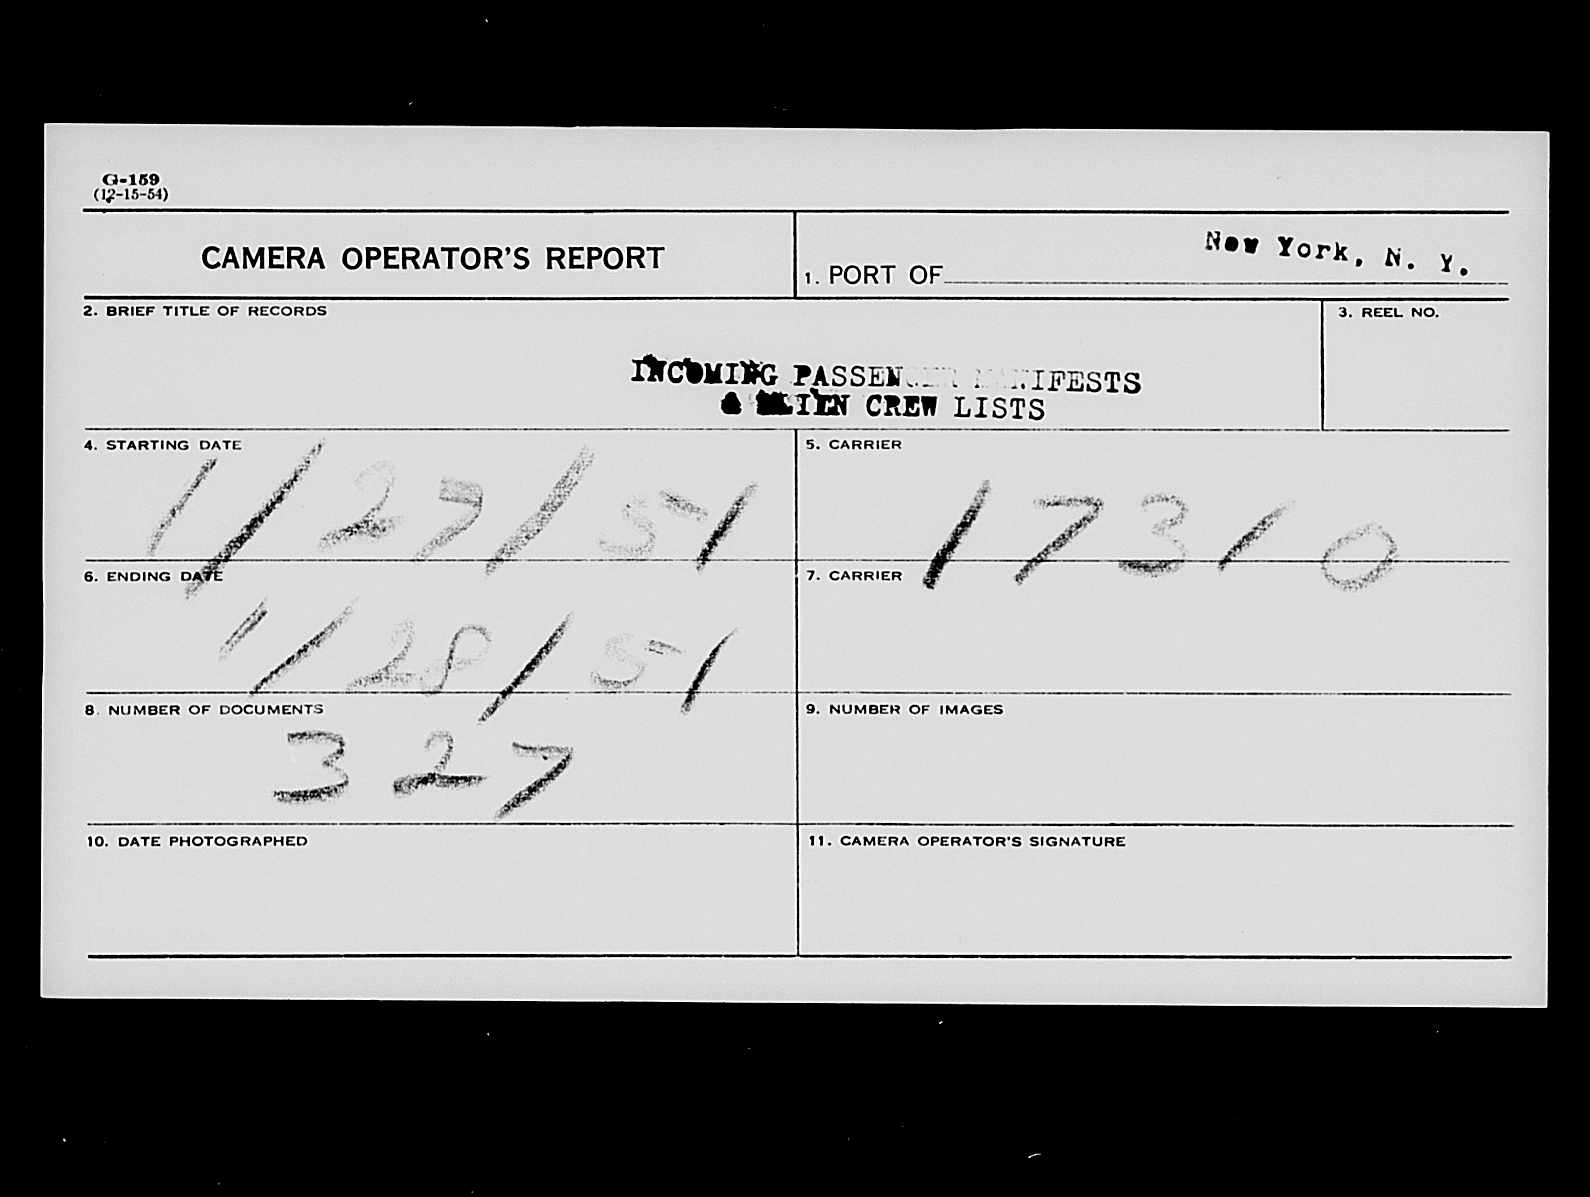 G-159
(12-15-54)
CAMERA OPERATOR'S REPORT
1. PORT OF New York, N. Y.
2. BRIEF TITLE OF RECORDS
3. REEL NO.
INCOMING PASSENGER MANIFESTS
& ALIEN CREW LISTS
4. STARTING DATE
1/27/51
5. CARRIER
17310
6. ENDING DATE
1/28/51
7. CARRIER
8. NUMBER OF DOCUMENTS
327
9. NUMBER OF IMAGES
10. DATE PHOTOGRAPHED
11. CAMERA OPERATOR'S SIGNATURE